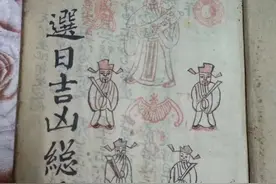 選日吉凶総